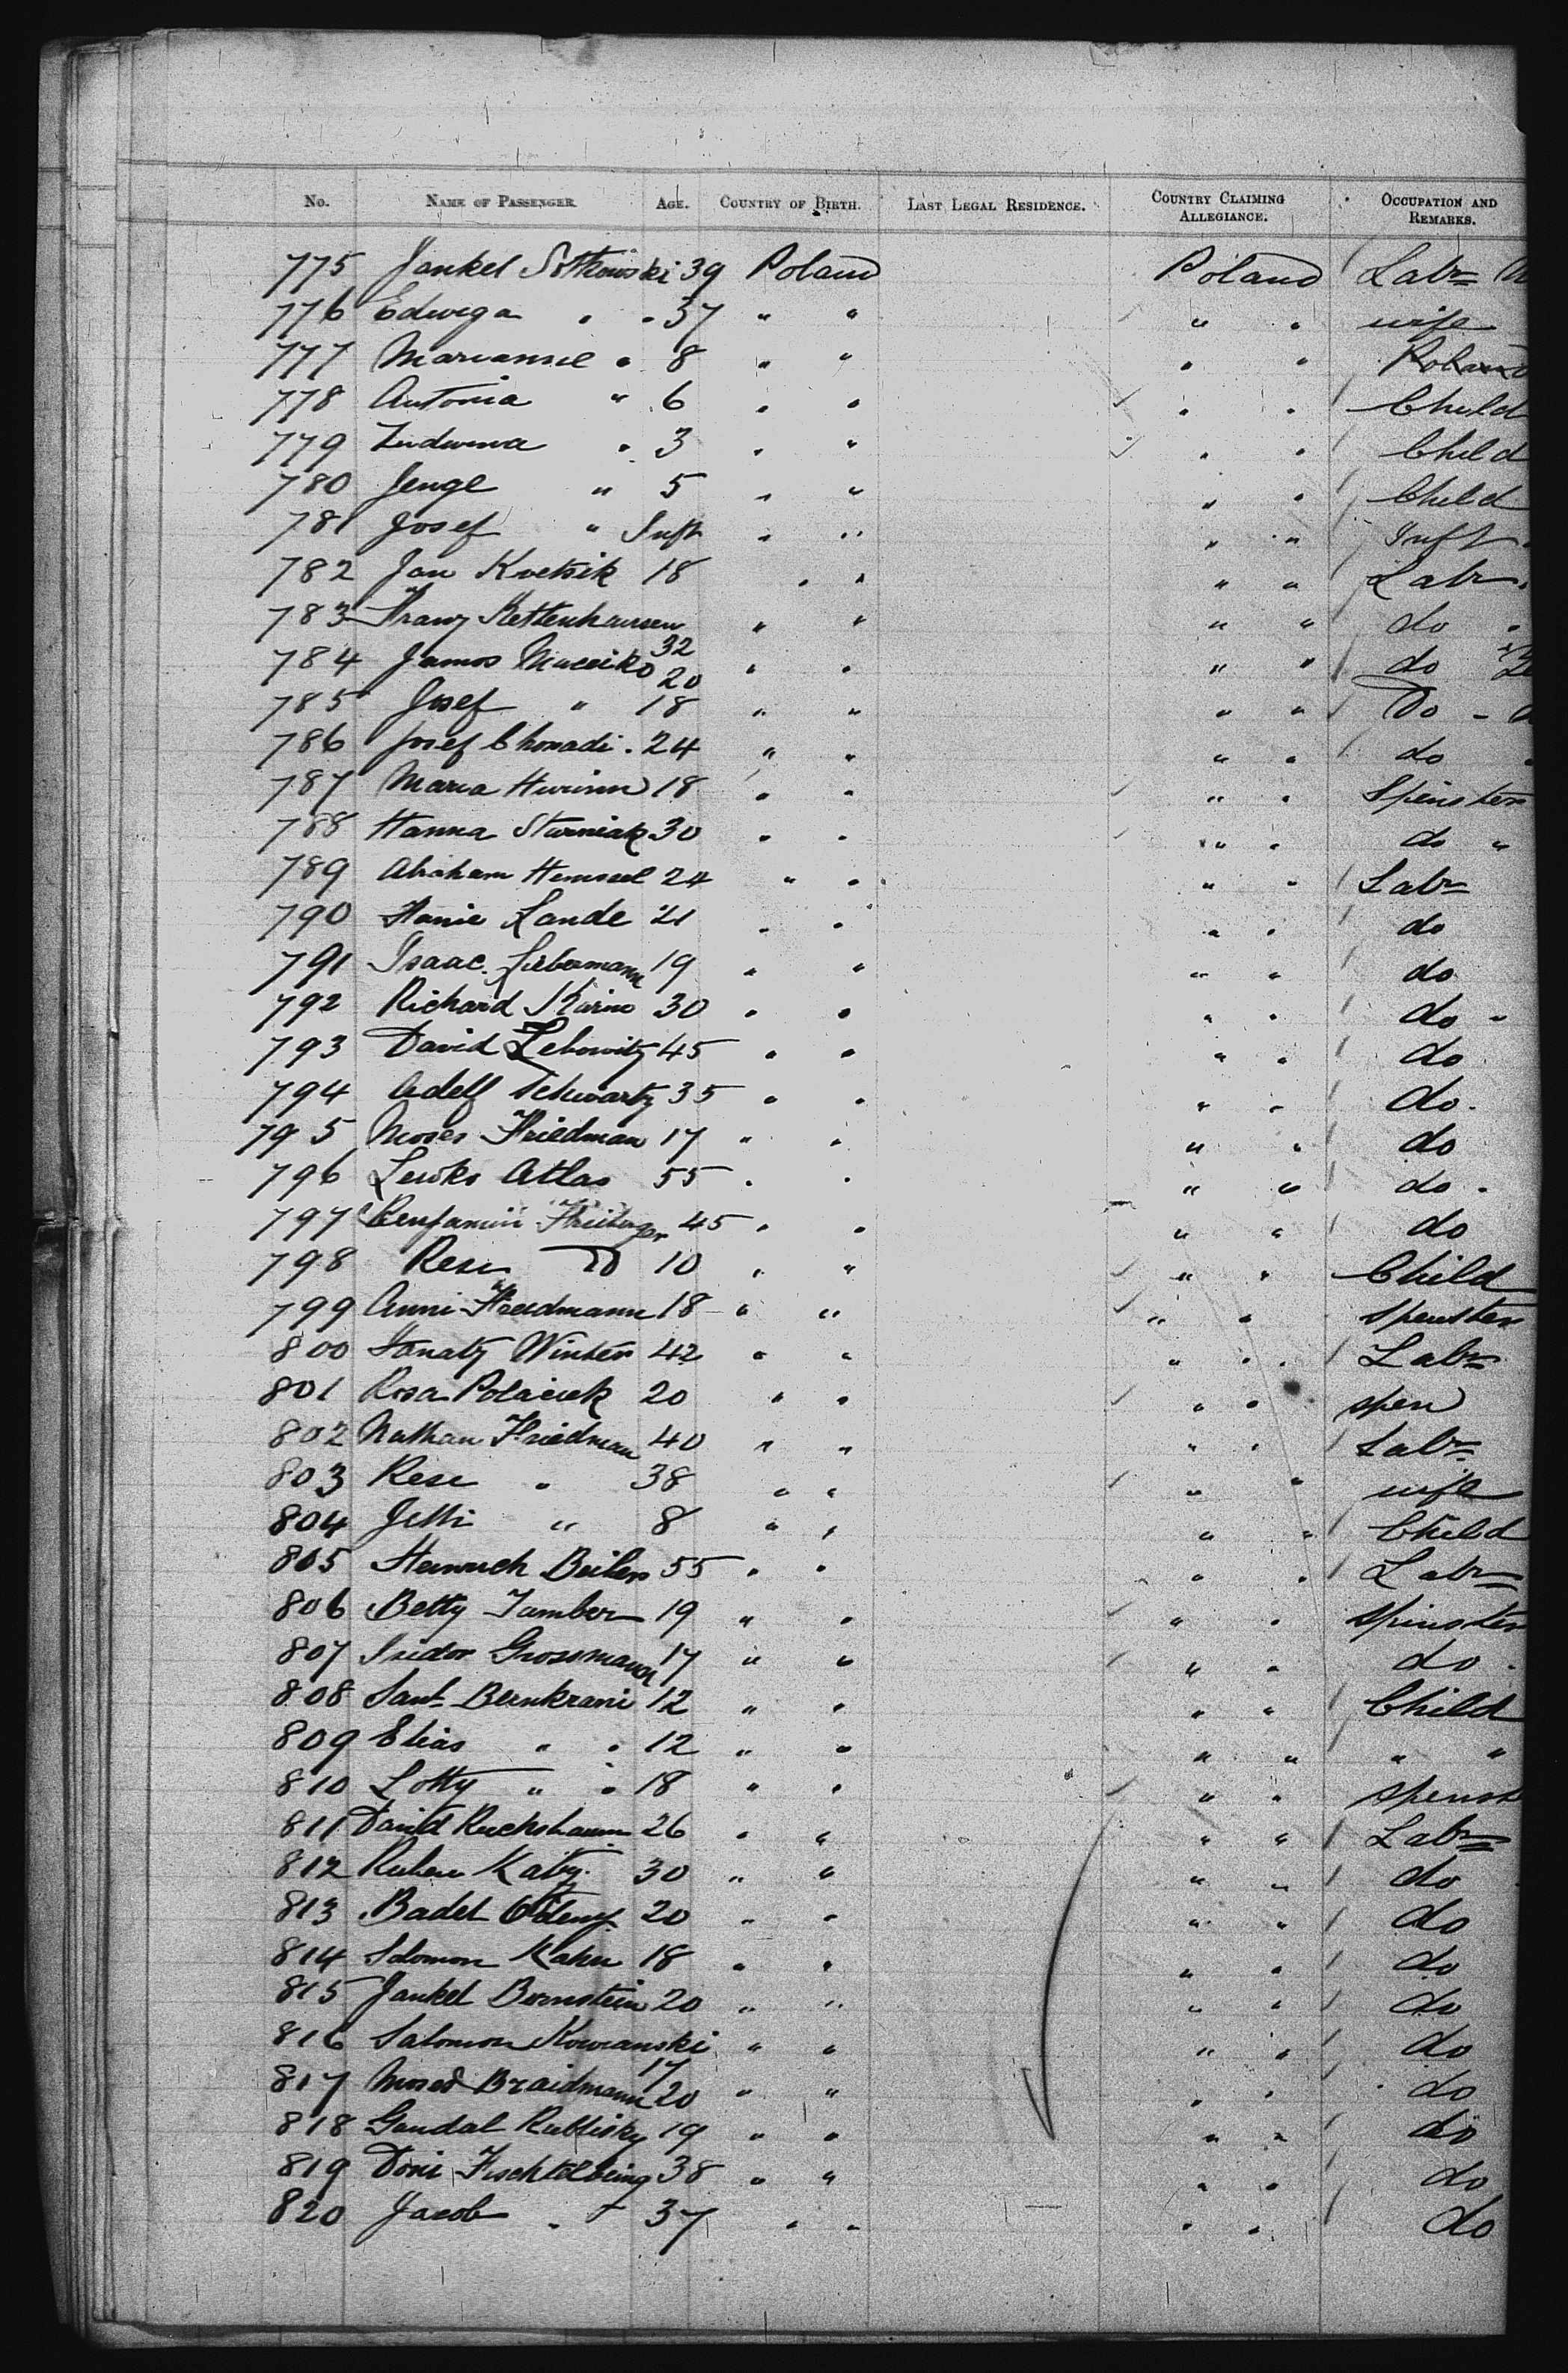 No. NAME OF PASSENGER AGE. COUNTRY OF BIRTH. LAST LEGAL RESIDENCE. COUNTRY CLAIMING ALLEGIANCE. OCCUPATION AND REMARKS.
775 Jankel Sotkowski 39 Poland Poland Labr
776 Edwiga " " 37 " " " " wife
777 Marianne " 8 " " " " Poland
778 Antonia " 6 " " " " Child
779 Ludwina " 3 " " " " Child
780 " 5 " " " " Child
781 Josef " Inft " " " " Inft
782 Jan 18 " " " " Labr
783 Franz Kettenhausen 32 " " " " do "
784 Janos 20 " " " " do
785 Josef " 18 " " " " Do
786 Josef 24 " " " " do "
787 Maria 18 " " " " Spinster
788 Hanna Sturniak 30 " " " " do "
789 Abraham 24 " " " " Labr
790 Lande 21 " " " " do
791 Isaac Liebermann 19 " " " " do
792 Richard 30 " " " " do "
793 David Lebowitz 45 " " " " do
794 Adolf Schwartz 35 " " " " do
795 Moses Friedman 17 " " " " do
796 Atlas 55 " " " " do
797 Benjamin 45 " " " " do
798 Resi Do 10 " " " " Child
799 Anni Friedmann 18 " " " " Spinster
800 Ignatz Winter 42 " " " " Labr
801 Rosa Polacsek 20 " " " " spin
802 Nathan Friedman 40 " " " " Labr
803 Resi " 38 " " " " wife
804 Jetti " 8 " " " " Child
805 Heinrich Beiler 55 " " " " Labr
806 Betty 19 " " " " Spinster
807 Isidor Grossmann 17 " " " " do
808 12 " " " " Child
809 Elias " " 12 " " " " " "
810 Lotty " " 18 " " " " spinst
811 David 26 " " " " Labr
812 Ruben Katz 30 " " " " do
813 Badel 20 " " " " do
814 Solomon Kahn 18 " " " " do
815 Jankel Bernstein 20 " " " " do
816 Salomon Kowranski 17 " " " " do
817 Moses Braidmann 20 " " " " do
818 19 " " " " do
819 38 " " " " do
820 Jacob " " 37 " " " " do